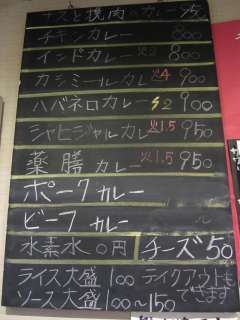 ナスと挽肉のカレー 950
チキンカレー 800
インドカレー 火2 800
カシミールカレー 火4 900
ハバネロカレー 火2 900
シャヒジャルカレー 火1.5 950
薬膳カレー 火1.5 950
ポークカレー
ビーフカレー 〃
水素水0円 チーズ50
ライス大盛100 テイクアウトも
ソース大盛100～150 できます